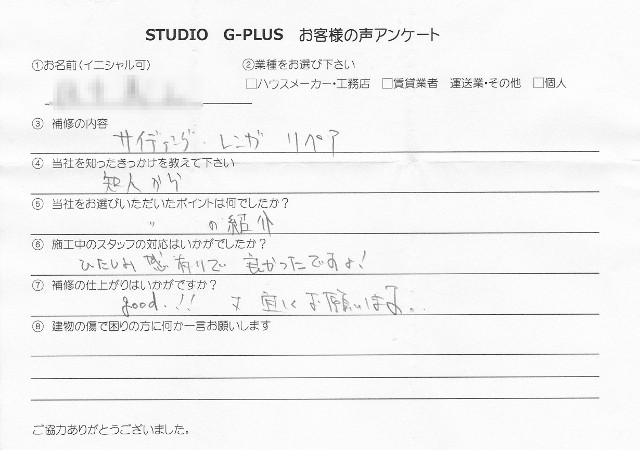 STUDIO G-PLUS お客様の声アンケート
①お名前(イニシャル可) ②業種をお選び下さい
□ハウスメーカー・工務店 □賃貸業者 運送業・その他 □個人
③ 補修の内容
サイディング・レンガ リペア
④ 当社を知ったきっかけを教えて下さい
知人から
⑤ 当社をお選びいただいたポイントは何でしたか?
〃 の紹介
⑥ 施工中のスタッフの対応はいかがでしたか?
感有りで 良かったですよ!
⑦ 補修の仕上がりはいかがですか?
good.!! 又 宜しくお願いします..
⑧ 建物の傷で困りの方に何か一言お願いします
ご協力ありがとうございました。